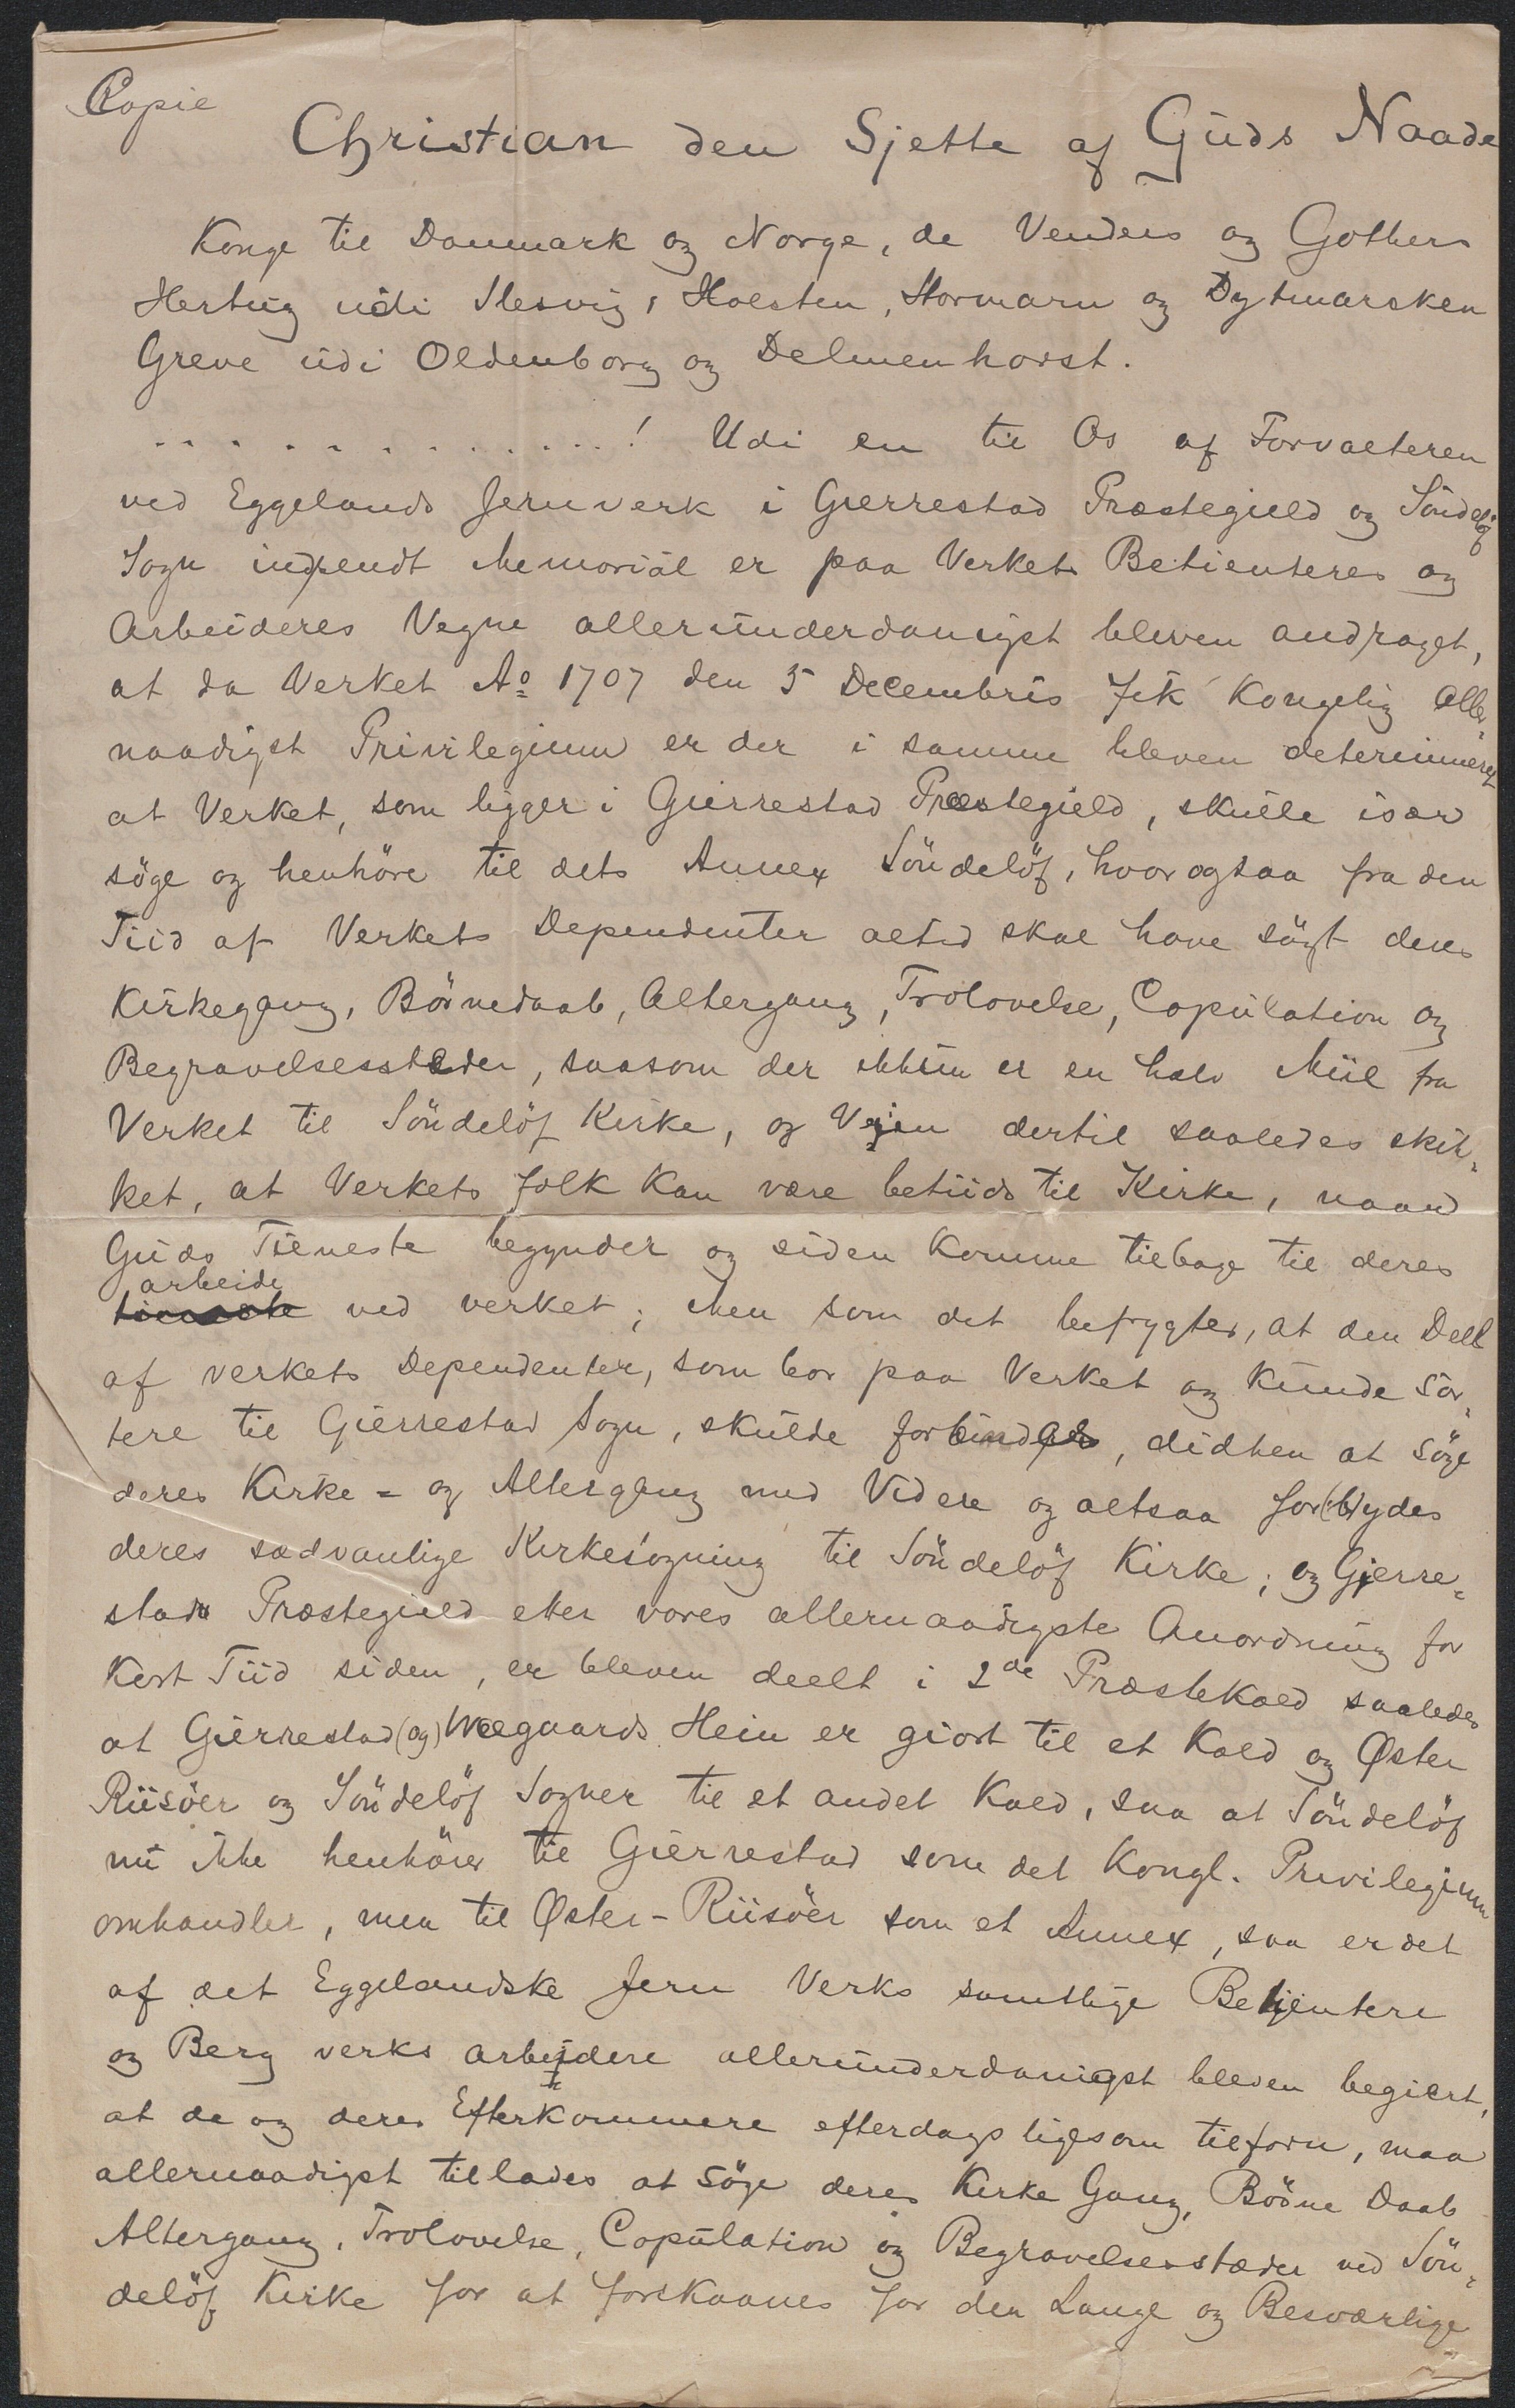 Copie
Christian den Sjette af Guds Naade
Konge til Danmark og Norge, de Venders og Gothers
Hertug udi Slesvig, Holsten, Stormarn og Dytmarsken
Greve udi Oldenborg og Delmenhorst.
. . . . . . . . . . . . . ! Udi en til Os af Forvalteren
ved Eggelands Jernverk i Gierrestad Præstegield og Söndelöf
Sogn indsendt Memorial er paa Verkets Betienteres og
Arbeideres Vegne allerunderdanigst bleven andraget,
at da Verket Aº 1707 den 5 Decembris fik Kongelig Aller„
naadigst Privilegium er der i samme bleven determineret
at Verket, som ligger i Gierrestad Præstegield, skulle især
söge og henhöre til dets Annex Söndelöf, hvor ogsaa fra den
Tiid af Verkets Dependenter altid skal have sögt deres
Kirkegang, Börnedaab, Altergang, Trolovelse, Copulation og
Begravelsesstæder, saasom der ikkun er en halv Miil fra
Verket til Söndelöf Kirke, og Vejen dertil saaledes skik„
ket, at Verkets folk kan være betiids til Kirke, naar
Guds Tieneste begynder og siden komme tilbage til deres
arbeide
tieneste ved verket; Men som det befrygtes, at den Deel
af verkets Dependenter, som bor paa Verket og kunde sor„
tere til Gierrestad Sogn, skulde forbindes, didhen at söge
deres Kirke = og Altergang med Videre og altsaa for(b)ydes
deres sædvanlige Kirkesogning til Söndelöf Kirke; og Gjerre„
stads Præstegield efter vores allernaadigste Anordning for
kort Tiid siden, er bleven deelt i 2de Præstekald saaledes
at Gierrestad (og) Weegaards Hein er giort til et Kald og Øster
Riisöer og Söndelöf Sogner til et andet Kald, saa at Söndelöf
nu ikke henhörer til Gierrestad som det Kongl. Privilegium
omhandler, men til Øster-Riisöer som et Annex, saa er det
af det Eggelandske Jern Verks samtlige Betjentere
og Berg verks arbejdere allerunderdanigst bleven begiert,
at de og deres Efterkommere efterdags ligesom tilforn, maa
allernaadigst tillades at söge deres Kirke Gang, Börne Daab
Altergang, Trolovelse, Copulation og Begravelsesstæder ved Sön„
delöf Kirke for at forskaanes for den Lange og Besværlige